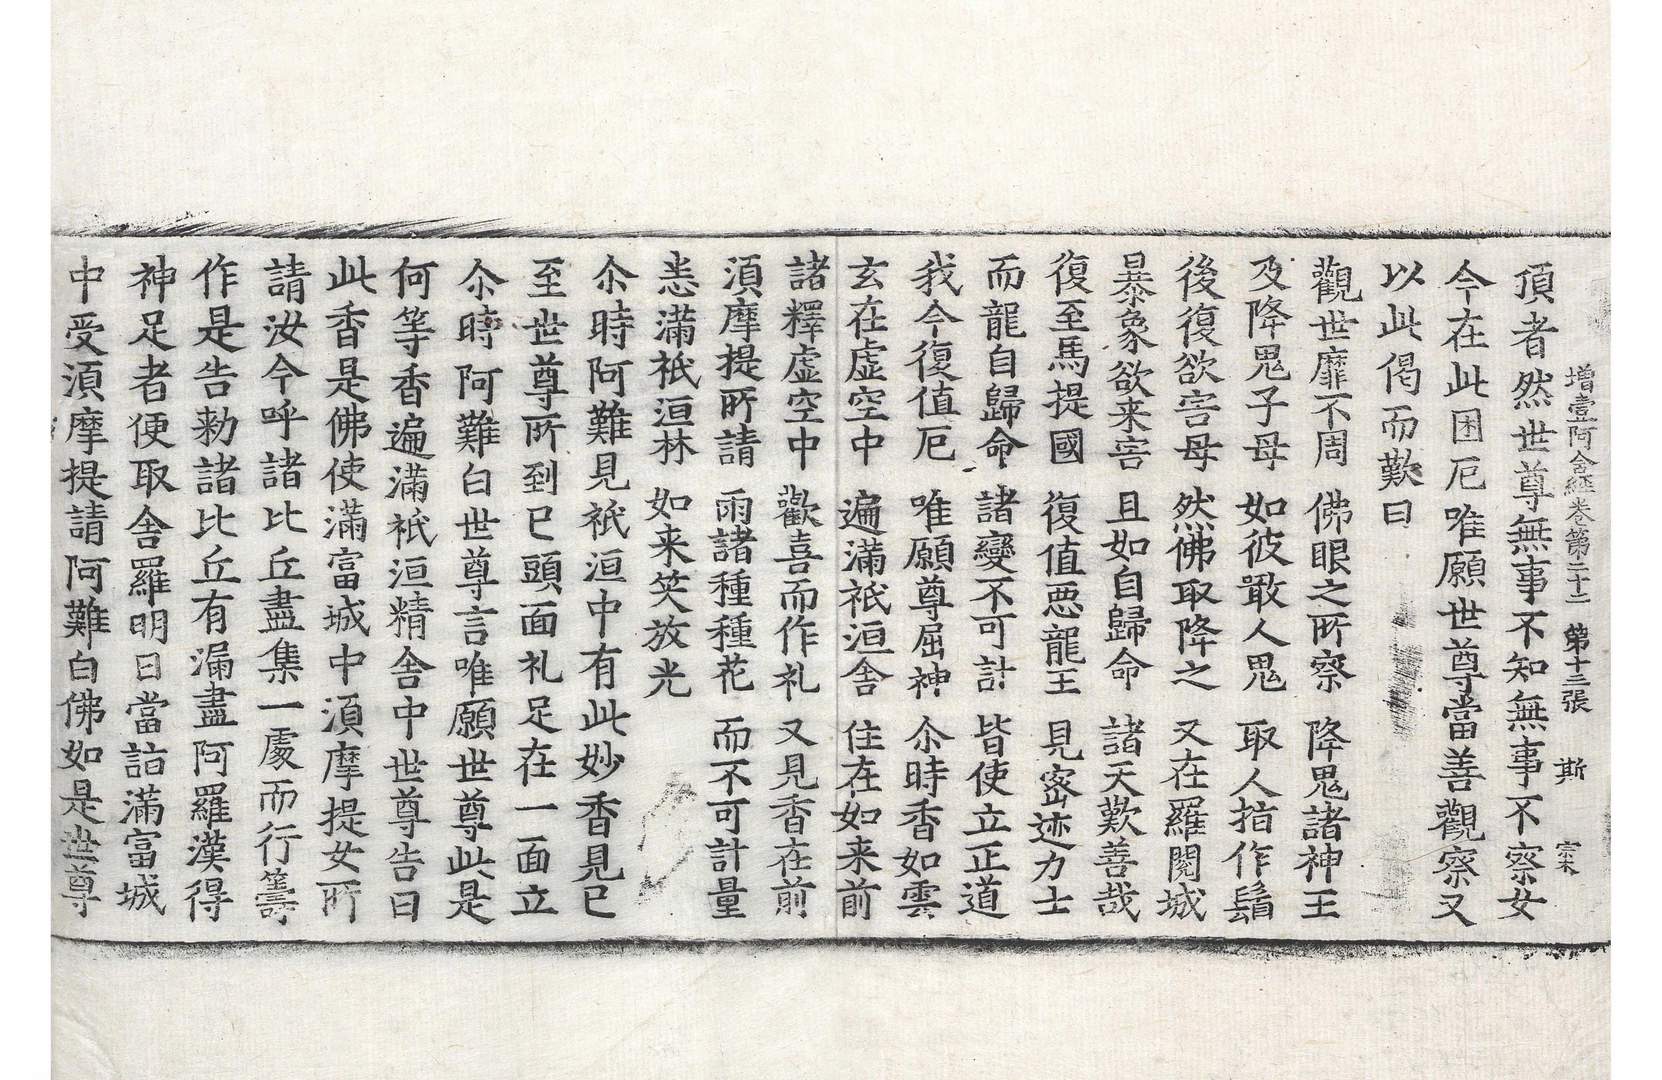 增壹阿含經卷第二十二　第十三張　斯　宗木
頂者然世尊無事不知無事不察女
今在此困厄唯願世尊當善觀察又
以此偈而歎曰
觀世靡不周　佛眼之所察　降鬼諸神王
及降鬼子母　如彼敢人鬼　取人指作鬘
後復欲害母　然佛取降之　又在羅閱城
暴象欲来害　且如自歸命　諸天歎善哉
復至馬提國　復值惡龍王　見密迹力士
而龍自歸命　諸變不可計　皆使立正道
我今復值厄　唯願尊屈神　尒時香如雲
玄在虛空中　遍滿祇洹舍　住在如来前
諸釋虛空中　歡喜而作礼　又見香在前
湏摩提所請　雨諸種種花　而不可計量
悉滿祇洹林　如来笑放光
尒時阿難見祇洹中有此妙香見已
至世尊所到已頭面礼足在一面立
尒時阿難白世尊言唯願世尊此是
何等香遍滿祇洹精舍中世尊告曰
此香是佛使滿富城中湏摩提女所
請汝今呼諸比丘盡集一處而行籌
作是告勑諸比丘有漏盡阿羅漢得
神足者便取舍羅明日當詣滿富城
中受湏摩提請阿難白佛如是世尊